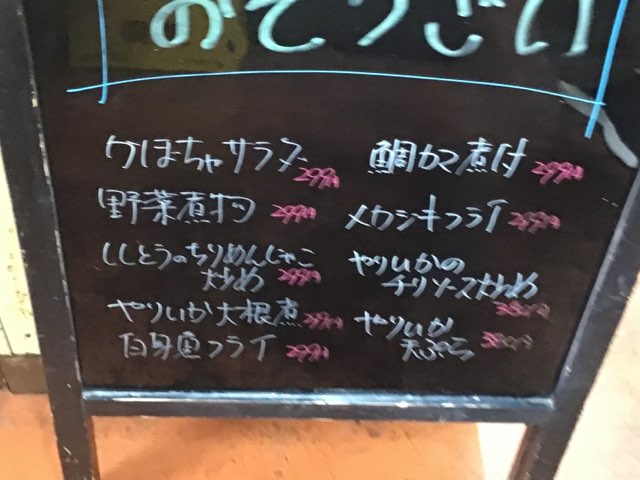 おそうざい
かぼちゃサラダ 299円
野菜煮物 299円
ししとうのちりめんじゃこ
炒め 299円
やりいか大根煮 299円
白身魚フライ 299円
鯛カマ煮付 299円
メカジキフライ 299円
やりいかの
チリソース炒め
380円
やりいか
天ぷら 380円